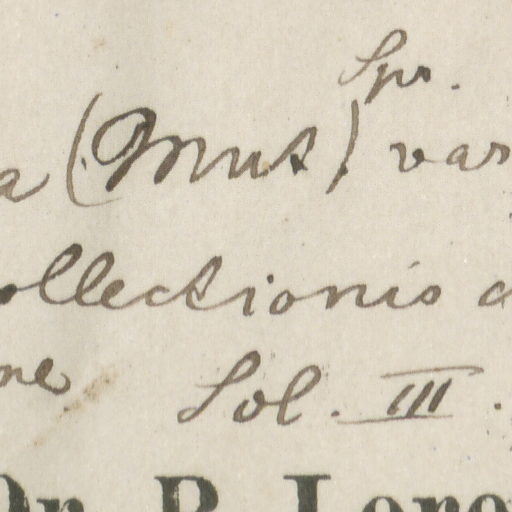 Spr.
a (Mut) var
ollectionis
ne Sol. III.
Dr. P. Lore